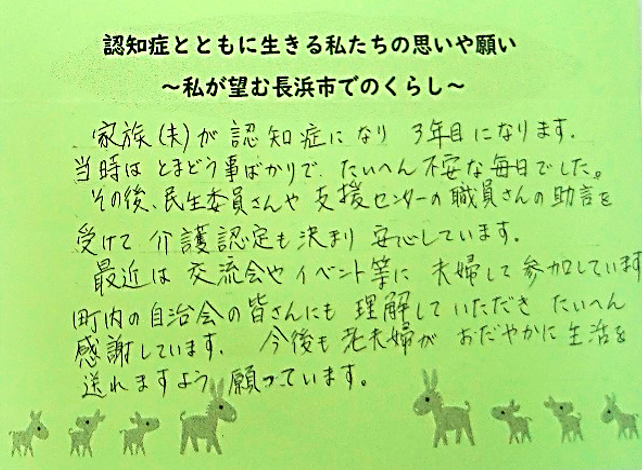 認知症とともに生きる私たちの思いや願い
～私が望む長浜市でのくらし～
家族(夫)が認知症になり 3年目になります.
当時は とまどう事ばかりで、たいへん不安な毎日でした。
その後、民生委員さんや 支援センターの職員さんの助言を
受けて 介護認定も決まり 安心しています.
最近は 交流会やイベント等に 夫婦して参加しています
町内の自治会の皆さんにも 理解していただき たいへん
感謝しています. 今後も老夫婦が おだやかに生活を
送れますよう 願っています。